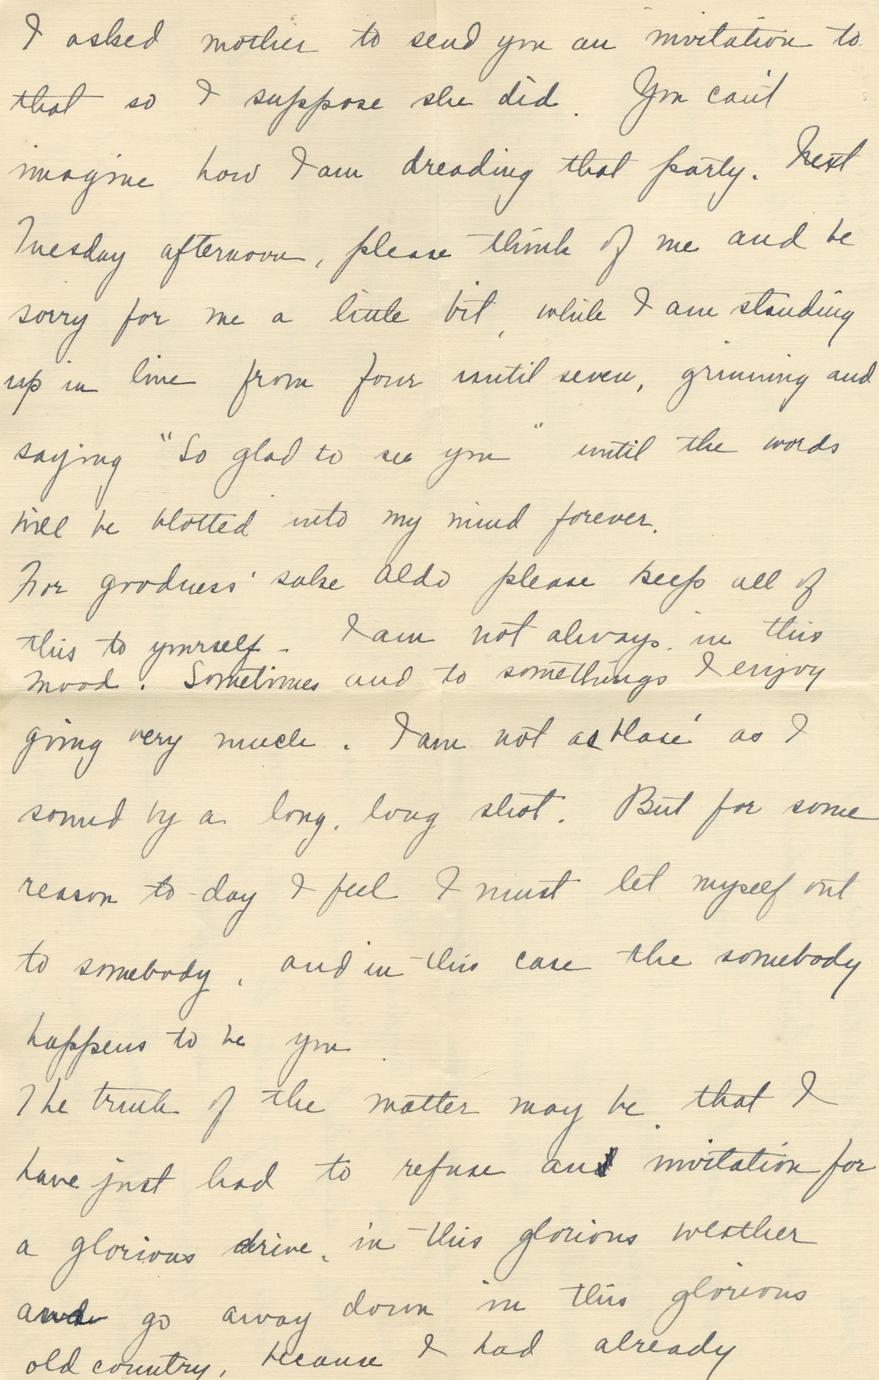 I asked mother to send you an invitation to
that so I suppose she did. You can't
imagine how I am dreading that party. Next
Tuesday afternoon, please think of me and be
sorry for me a little bit, while I am standing
up in line from four until seven, grinning and
saying "So glad to see you" until the words
will be blotted into my mind forever.
For goodness' sake Aldo please keep all of
this to yourself - I am not always in this
mood. Sometimes and to somethings I enjoy
going very much. I am not as blasé as I
sound by a long, long shot. But for some
reason to-day I feel I must let myself out
to somebody, and in this case the somebody
happens to be you.
The truth of the matter may be that I
have just had to refuse an invitation for
a glorious drive, in this glorious weather
and go away down in this glorious
old country, because I had already